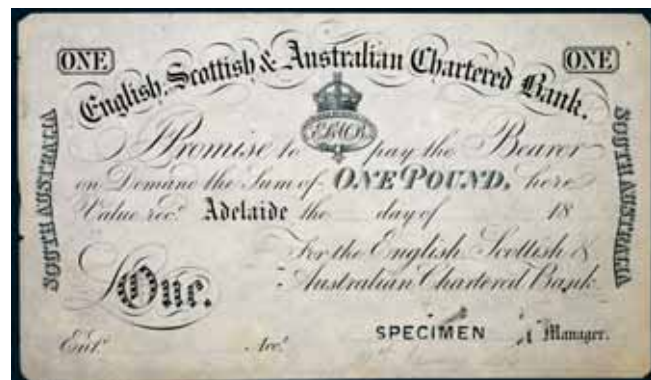 ONE ONE
English, Scottish & Australian Chartered Bank.
SOUTH AUSTRALIA
SOUTH AUSTRALIA
I Promise to pay the Bearer
on Demand the Sum of ONE POUND, here
Value recd. Adelaide the day of 18
For the English Scottish &
Australian Chartered Bank
One.
SPECIMEN Manager.
Entd. Acct.